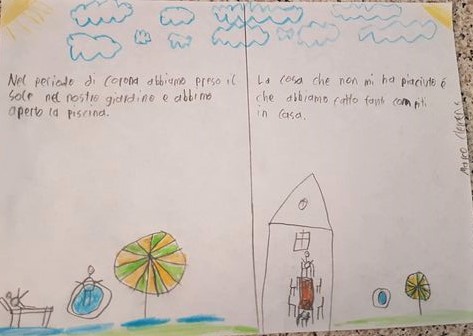 Nel periodo di Corona abbiamo preso il
sole nel nostro giardino e abbimo
aperto la piscina.
La cosa che non mi ha piaciuto é
che abbiamo fatto tanti compiti
in casa.